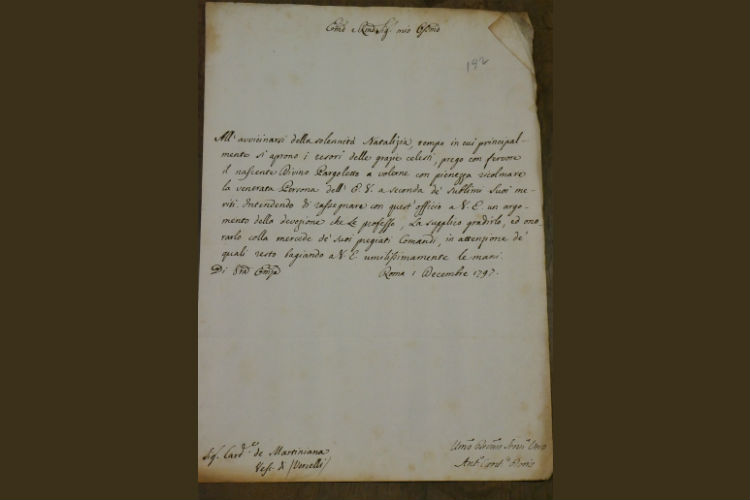 Emo e Rmo Sig. mio Ossmo
192
All' avvicinarsi della solennità Natalizia, tempo in cui principal-
mente si aprono i tesori delle grazie celesti, prego con fervore
il nascente Divino Pargoletto a volerne con pienezza ricolmare
la venerata Persona dell' E. V. a seconda de' sublimi Suoi me-
riti. Intendendo di rassegnare con quest' officio a V. E. un argo-
mento della devozione che Le professo, La supplico gradirlo, ed ono-
rarlo colla mercede de' suoi pregiati Comandi, in attenzione de'
quali resto bagiando a V. E. umilissimamente le mani.
Di Roma 1 Decembre 1797.
Sig. Card.e de Martiniana
Vesc. di (Vercelli)
Umo Servre
Ant. Card. Doria